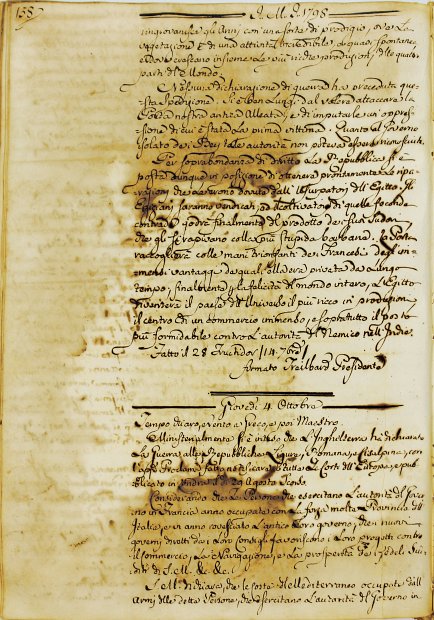 138
A. M. D. 1798
ringiovanisce gli Anni con una sorta di prodigio, ove la
vegetazione è di una attività incredibile, e quasi spontanea
ove crescono insieme le più ricche produzioni delle quattro
parti del Mondo.
Nessuna dichiarazione di guerra ha preceduta que-
sta Spedizione. Si è ben lungi dal volere attaccare la
Porta nostra antica Alleata, e di imputarle un'oppres-
sione di cui è stata la prima vittima. Quanto al Governo
isolato dei Bey tale autorità non poteva esser riconosciuta.
Per soprabondanza di diritto la Repubblica si è
posta dunque in posizione di ottenere prontamente le ripa-
razioni che le erano dovute dagl'Usurpatori dell'Egitto. Gl'
Egiziani saranno vendicati, ed il coltivatore di quelle feconde
contrade godrà finalmente del prodotto dei suoi sudori
che gli si rapivano colla più stupida barbarie. La Porta
raccoglierà colle mani trionfanti dei Francesi degl'im-
mensi vantaggi da' quali ella era priva da lungo
tempo; finalmente per la felicità del mondo intero, l'Egitto
diventerà il paese dell'Universo il più ricco in produzioni
il centro di un commercio immenso, e sopratutto il posto
più formidabile contro l'autorità del Nemico nell'Indie.
Fatto il 28 Fruttidor / 14. 7bre /
firmato Treilhard Presidente
Giovedì 4 Ottobre
Tempo chiaro, e vento a Greco, e poi Maestro.
Ministerialmente si è inteso che l'Inghilterra ha dichiarato
la Guerra alle Repubbliche Ligure, Romana, e Cisalpina, con
l'app.° Proclama fatto notificare a tutte le Corti dell'Europa, e pub-
blicato in Londra il dì 29 Agosto scorso.
Considerando che le Persone, che esercitano l'autorità del Gover-
no in Francia anno occupato con la forza molte Provincie dell'
Italia, e vi anno rovesciato l'antico loro governo, che i nuovi
governi diretti da' loro Consigli favoriscono i loro progetti contro
il Commercio, la Navigazione, e la prosperità dei fedeli Sud-
diti di S. M. &c. &c.
S. M. dichiara, che le coste del Mediterraneo occupate dall'
Armi delle dette Persone, che esercitano l'autorità del Governo in